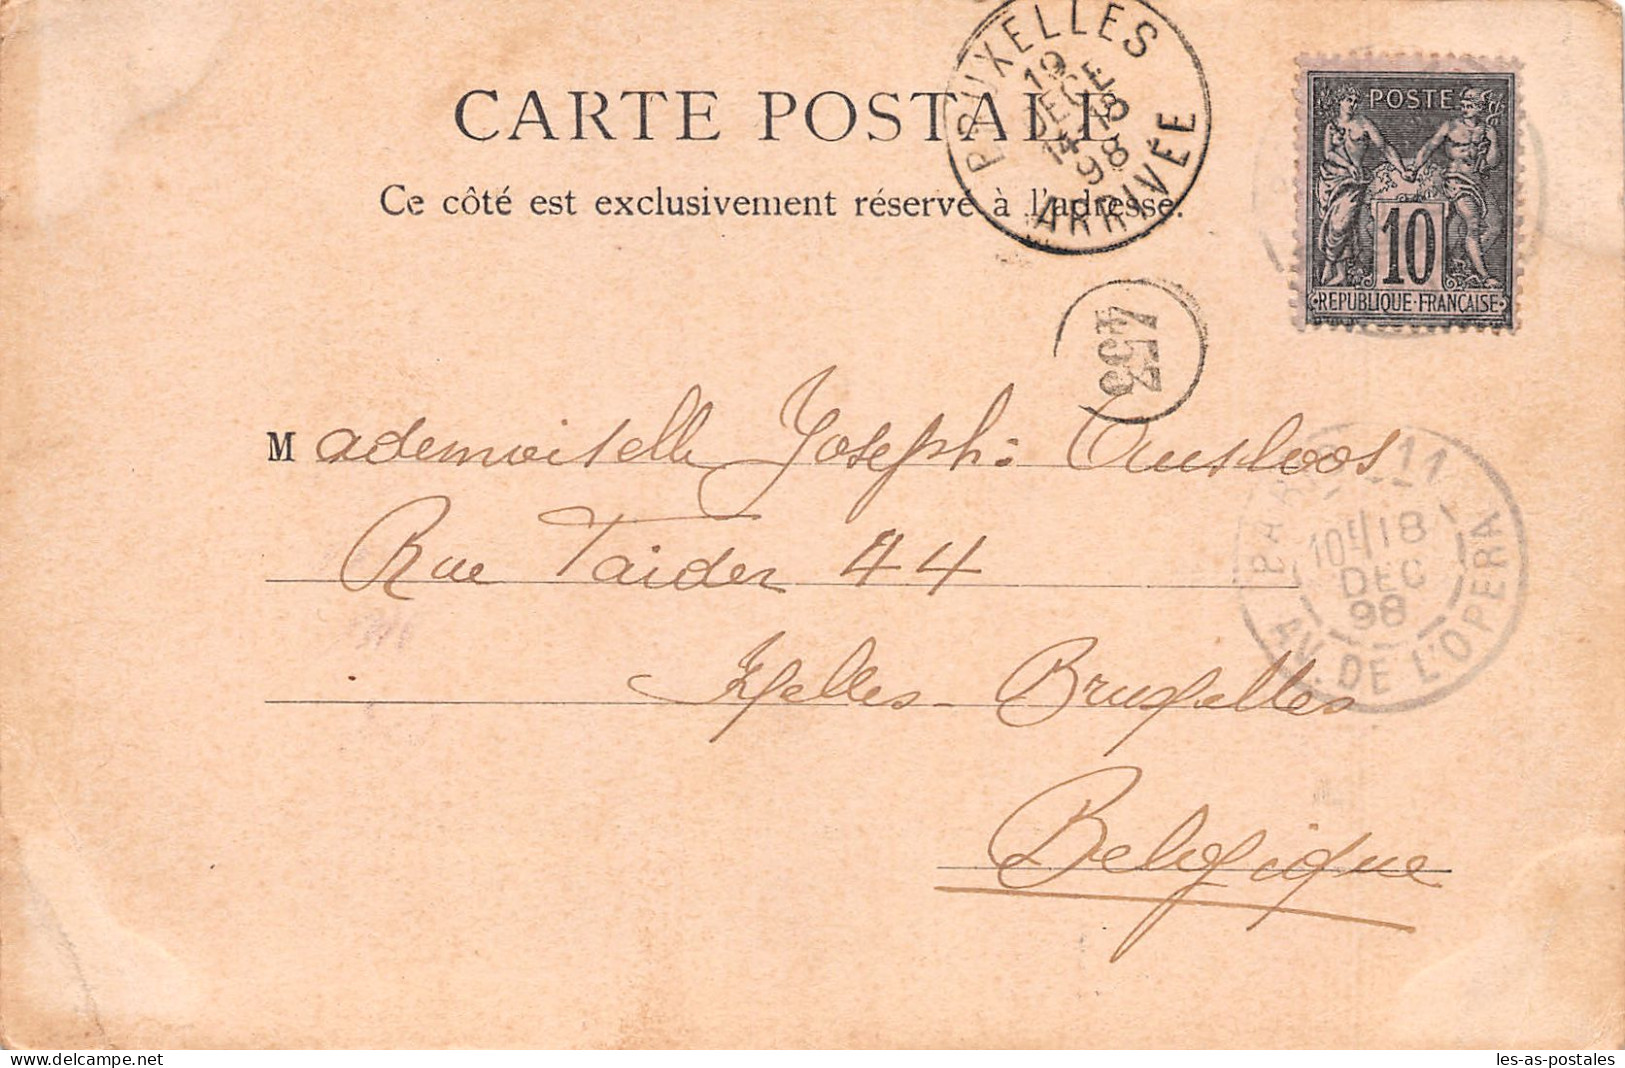 CARTE POSTALE
Ce côté est exclusivement réservé à l'adresse.
BRUXELLES
19
DECE
14-18
98
ARRIVÉE
POSTE
10
REPUBLIQUE·FRANÇAISE
Mademoiselle Joseph: Ausloos
Rue Taider 44
Ixelles - Bruxelles
Belgique
PARIS 11
18
DEC
98
AV. DE L'OPERA
www.delcampe.net
les-as-postales